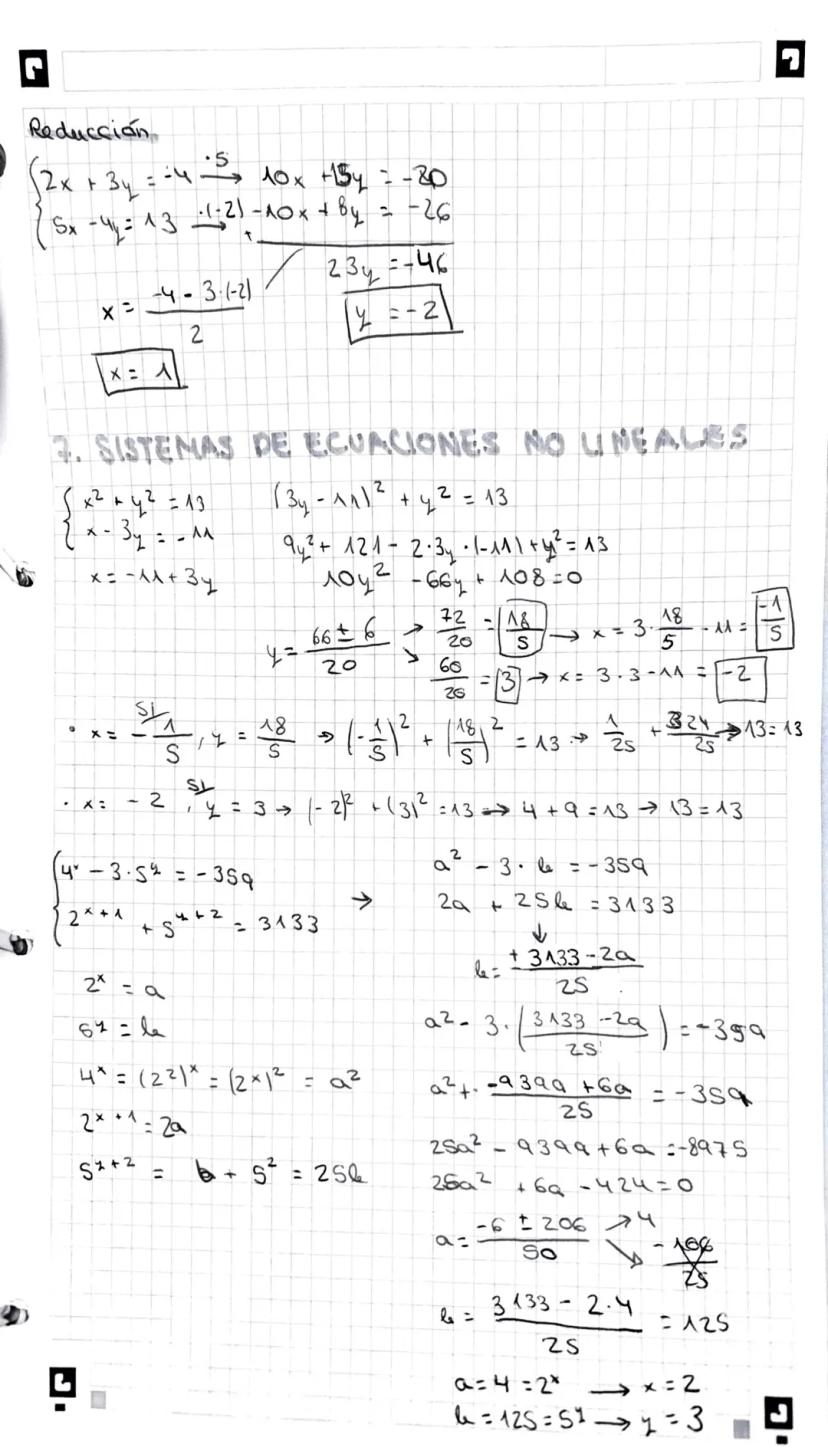 Reducción
{ 2x + 3y = -4 →(·5) 10x + 15y = -20
{ 5x - 4y = 13 →(·(-2)) -10x + 8y = -26
+
23y = -46
y = -2
x = (-4 - 3·(-2)) / 2
x = 1
7. SISTEMAS DE ECUACIONES NO LINEALES
{ x² + y² = 13
{ x - 3y = -11
x = -11 + 3y
(3y - 11)² + y² = 13
9y² + 121 - 2·3y·(-11) + y² = 13
10y² - 66y + 108 = 0
y = (66 ± 6) / 20
→ 72/20 = 18/5 → x = 3·18/5 - 11 = -1/5
→ 60/20 = 3 → x = 3·3 - 11 = -2
Si
· x = -1/5, y = 18/5 → (-1/5)² + (18/5)² = 13 → 1/25 + 324/25 → 13 = 13
Si
· x = -2, y = 3 → (-2)² + (3)² = 13 → 4 + 9 = 13 → 13 = 13
{ 4ˣ - 3·5ʸ = -359
{ 2ˣ⁺¹ + 5ʸ⁺² = 3133
→
2ˣ = a
5ʸ = b
4ˣ = (2²)ˣ = (2ˣ)² = a²
2ˣ⁺¹ = 2a
5ʸ⁺² = b + 5² = 25b
a² - 3·b = -359
2a + 25b = 3133
↓
b = (+3133 - 2a) / 25
a² - 3·((3133 - 2a) / 25) = -359
a² + (-9399 + 6a) / 25 = -359
25a² - 9399 + 6a = -8975
25a² + 6a - 424 = 0
a = (-6 ± 206) / 50 → 4
→ -106/25
b = (3133 - 2·4) / 25 = 125
a = 4 = 2ˣ → x = 2
b = 125 = 5ʸ → y = 3